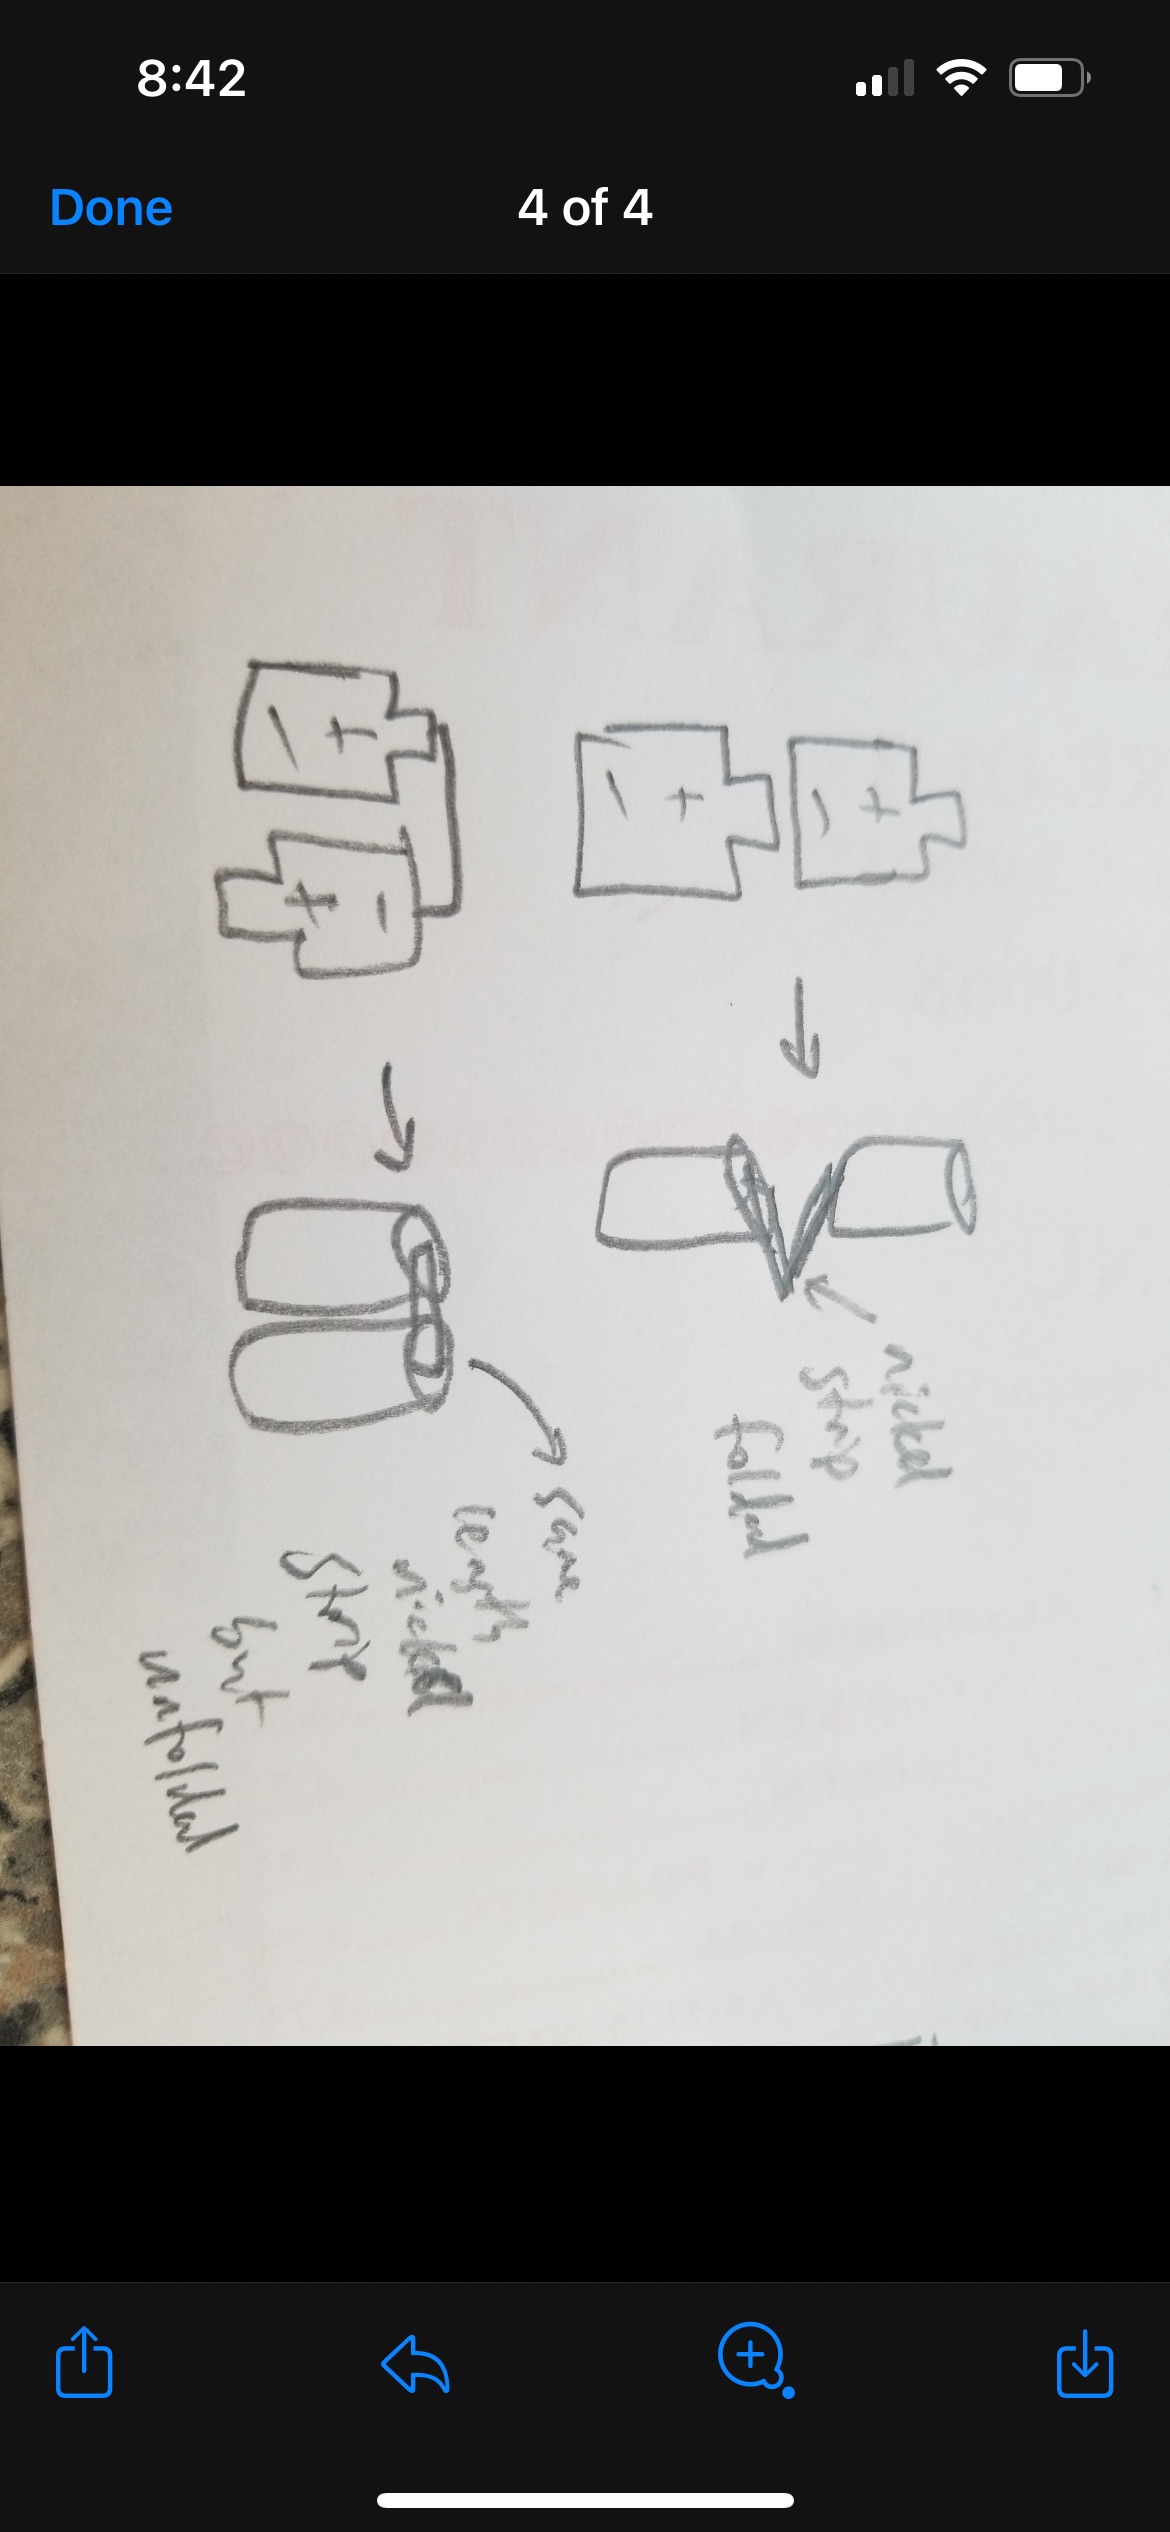 8:42
Done
4 of 4
+
-
+
-
nickel
strip
folded
+
-
-
+
same
length
nickel
strip
but
unfolded